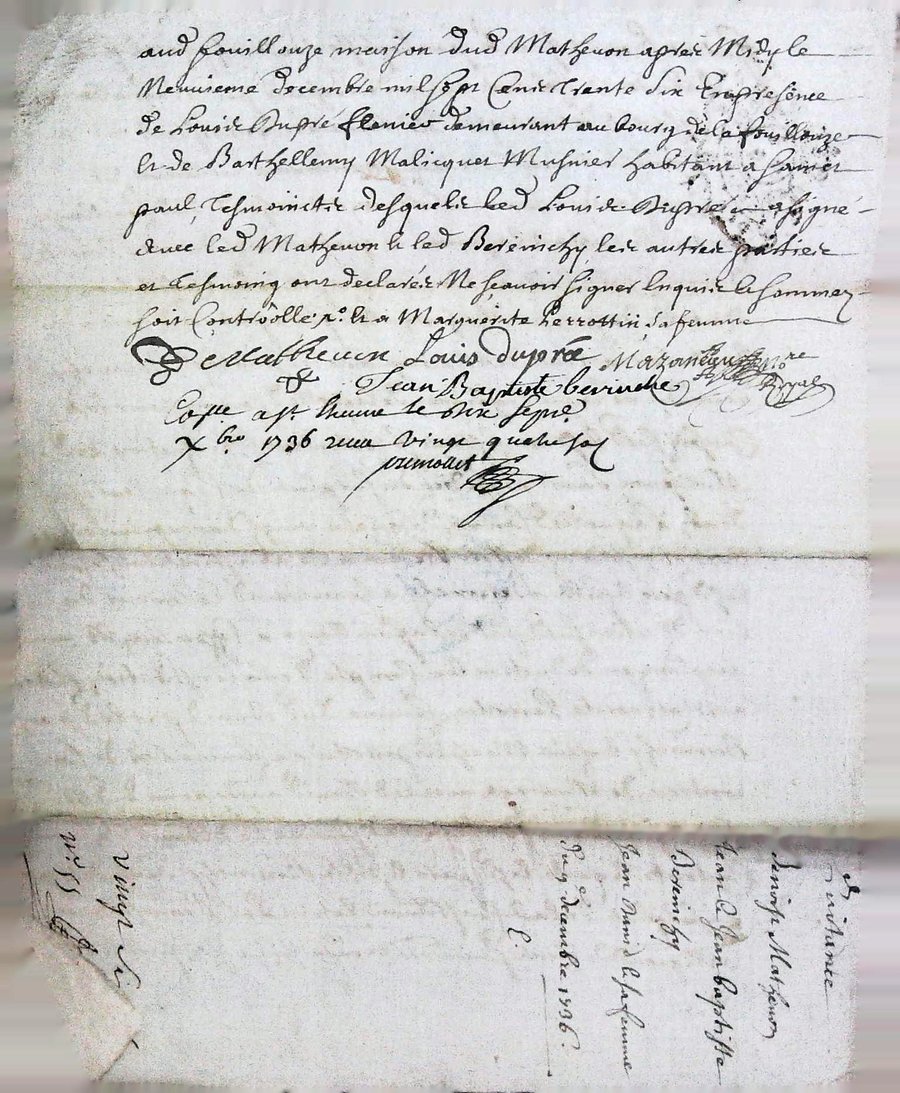 aud fouillouze maison dud Mathevon apres Midy le
Neuvieme decembre mil sept Cents Trente Six En presence
de Louis Dupre demeurant au bourg de la fouillouze
Et de Barthellemy Malicquet Musnier habitant a Sainct
paul, Tesmoincts desquels led Louis Dupre a signé
avec led Mathevon & led Berinchy les autres parties
et Tesmoing ont declarés Ne sçavoir signer Enquis & sommez
soit Controollé. & a Marguerite Perrottin sa femme
Mathevon Louis dupré Mazancieu No.re
& Jean Baptiste berinche Royal
a st le dix sept
Xbre 1736 vingt quatre sol
premollet
Quittance
Benoist Mathevon
Jean & Jean baptiste
Berinchy
Jean & sa femme
Du 9 decembre 1736.
E.
Vingt Six